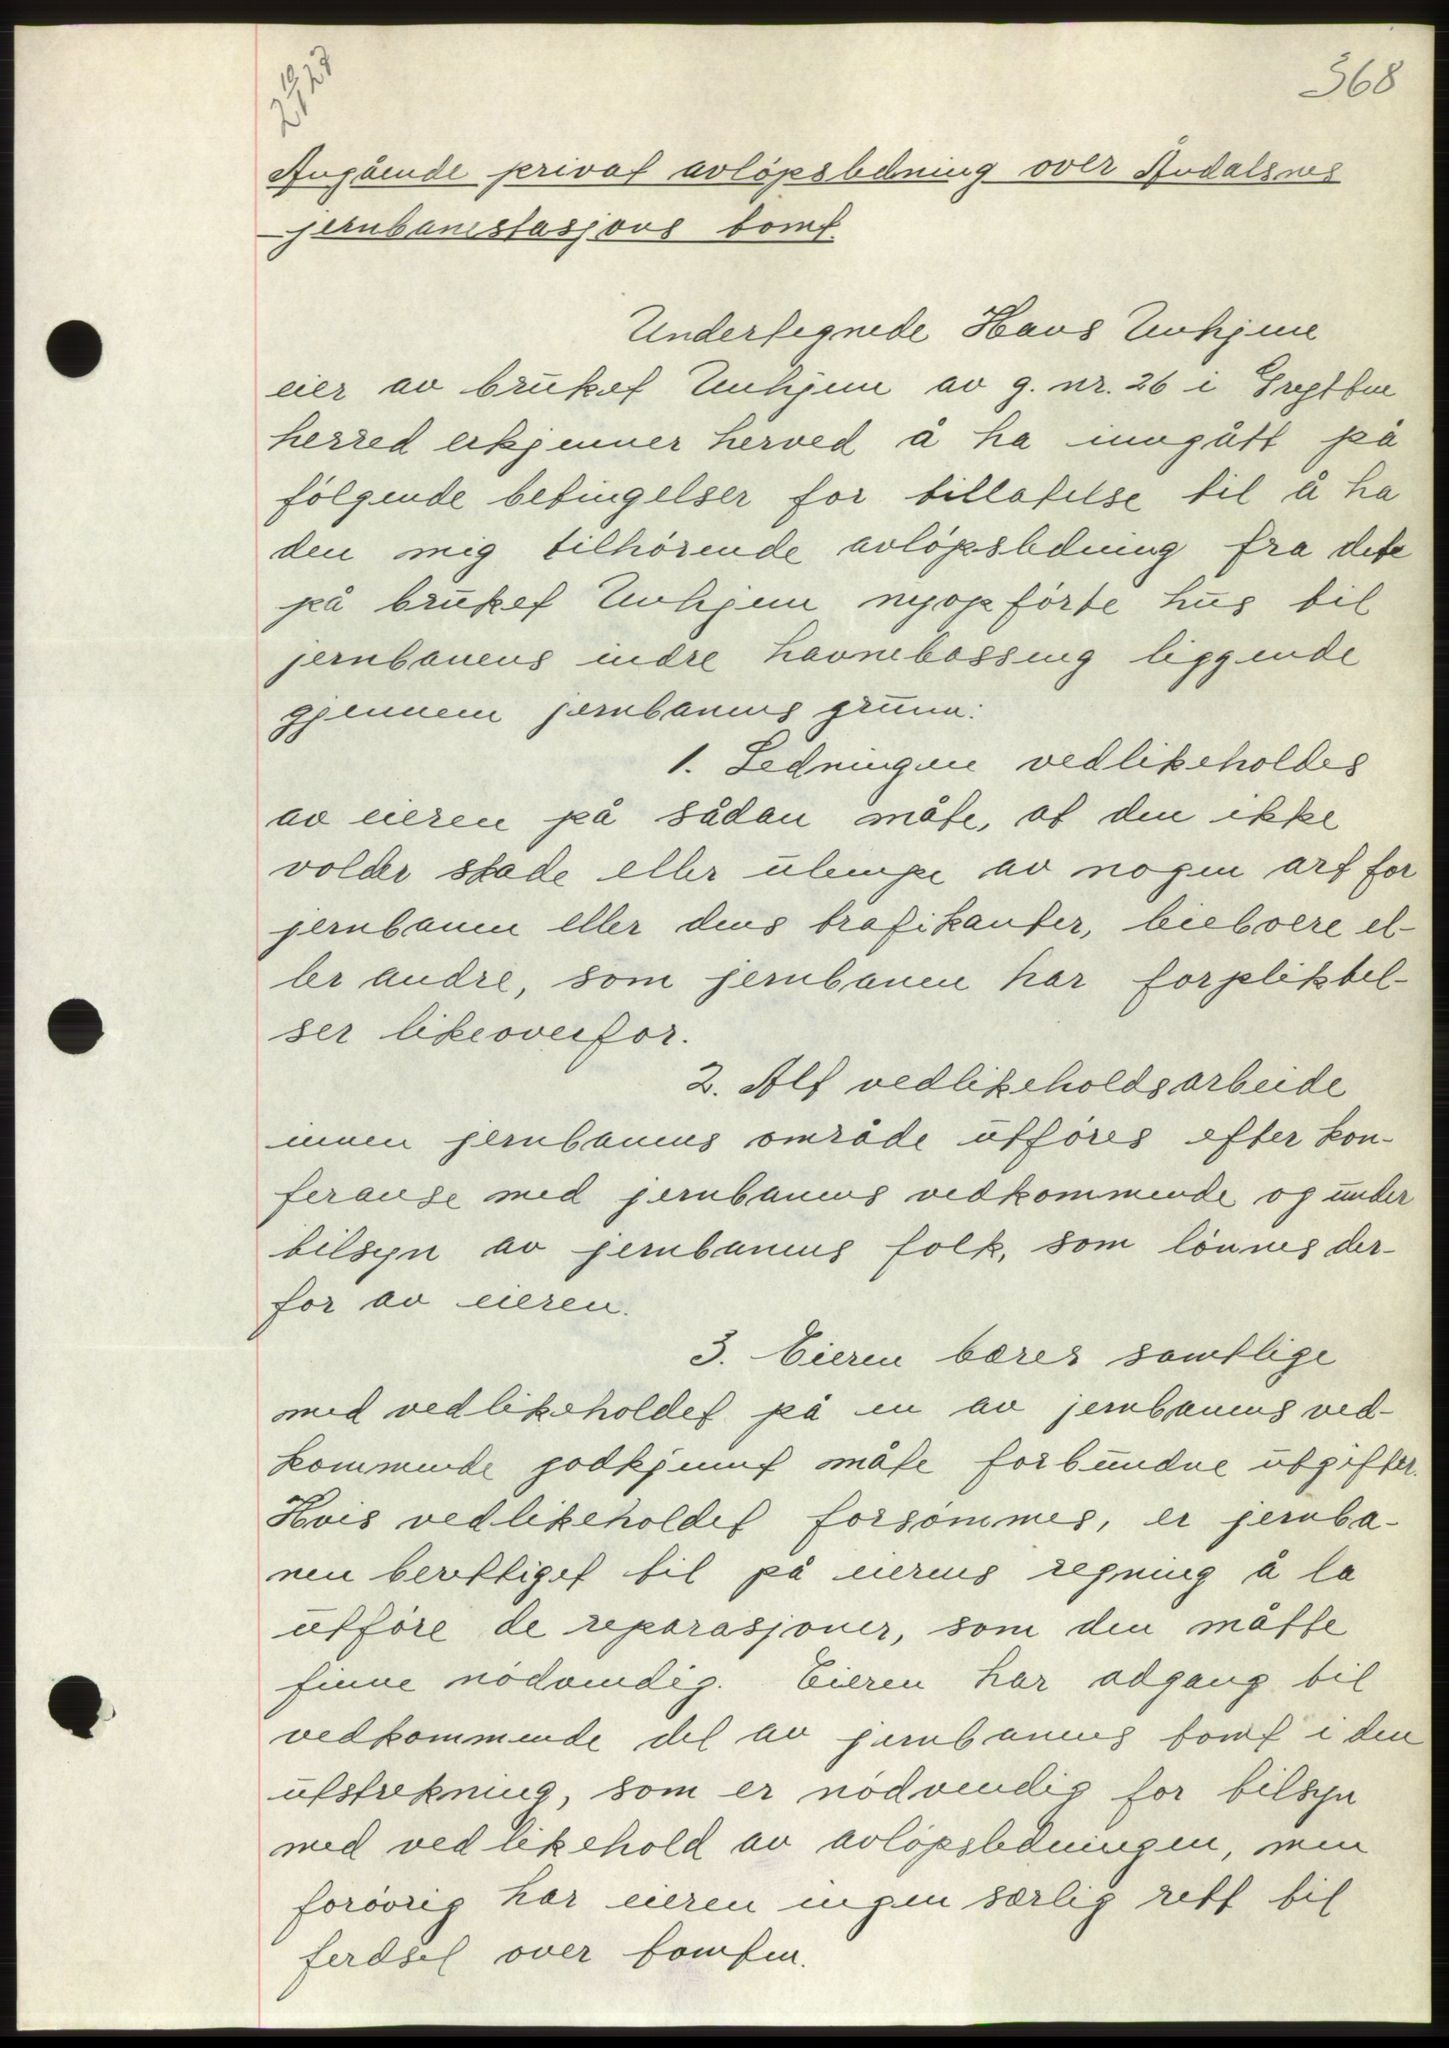 368
Angående privat avlöpsledning over Åndalsnes
jernbanestasjons tomt.
Undertegnede Hans Unhjem
eier av bruket Unhjem av g. nr. 26 i Grytten
herred erkjenner herved å ha inngått på
fölgende betingelser for tillatelse til å ha
den mig tilhörende avlöpsledning fra dete
på bruket Unhjem nyopförte hus til
jernbanens indre havnebasseng liggende
gjennem jernbanens grunn:
1. Ledningen vedlikeholdes
av eieren på sådan måte, at den ikke
volder skade eller ulempe av nogen art for
jernbanen eller dens trafikanter, leieboere el-
ler andre, som jernbanen har forpliktel-
ser likeoverfor.
2. Alt vedlikeholdsarbeide
innen jernbanens område utföres efter kon-
feranse med jernbanens vedkommende og under
tilsyn av jernbanens folk, som lönnes der-
for av eieren.
3. Eieren bærer samtlige
med vedlikeholdet på en av jernbanens ved-
kommende godkjennt måte forbundne utgifter.
Hvis vedlikeholdet forsömmes, er jernba-
nen berettiget til på eierens regning å la
utföre de reparasjoner, som den måtte
finne nödvendig. Eieren har adgang til
vedkommende del av jernbanens tomt i den
utstrekning, som er nödvendig for tilsyn
med vedlikehold av avlöpsledningen, men
forövrig har eieren ingen særlig rett til
ferdsel over tomten.